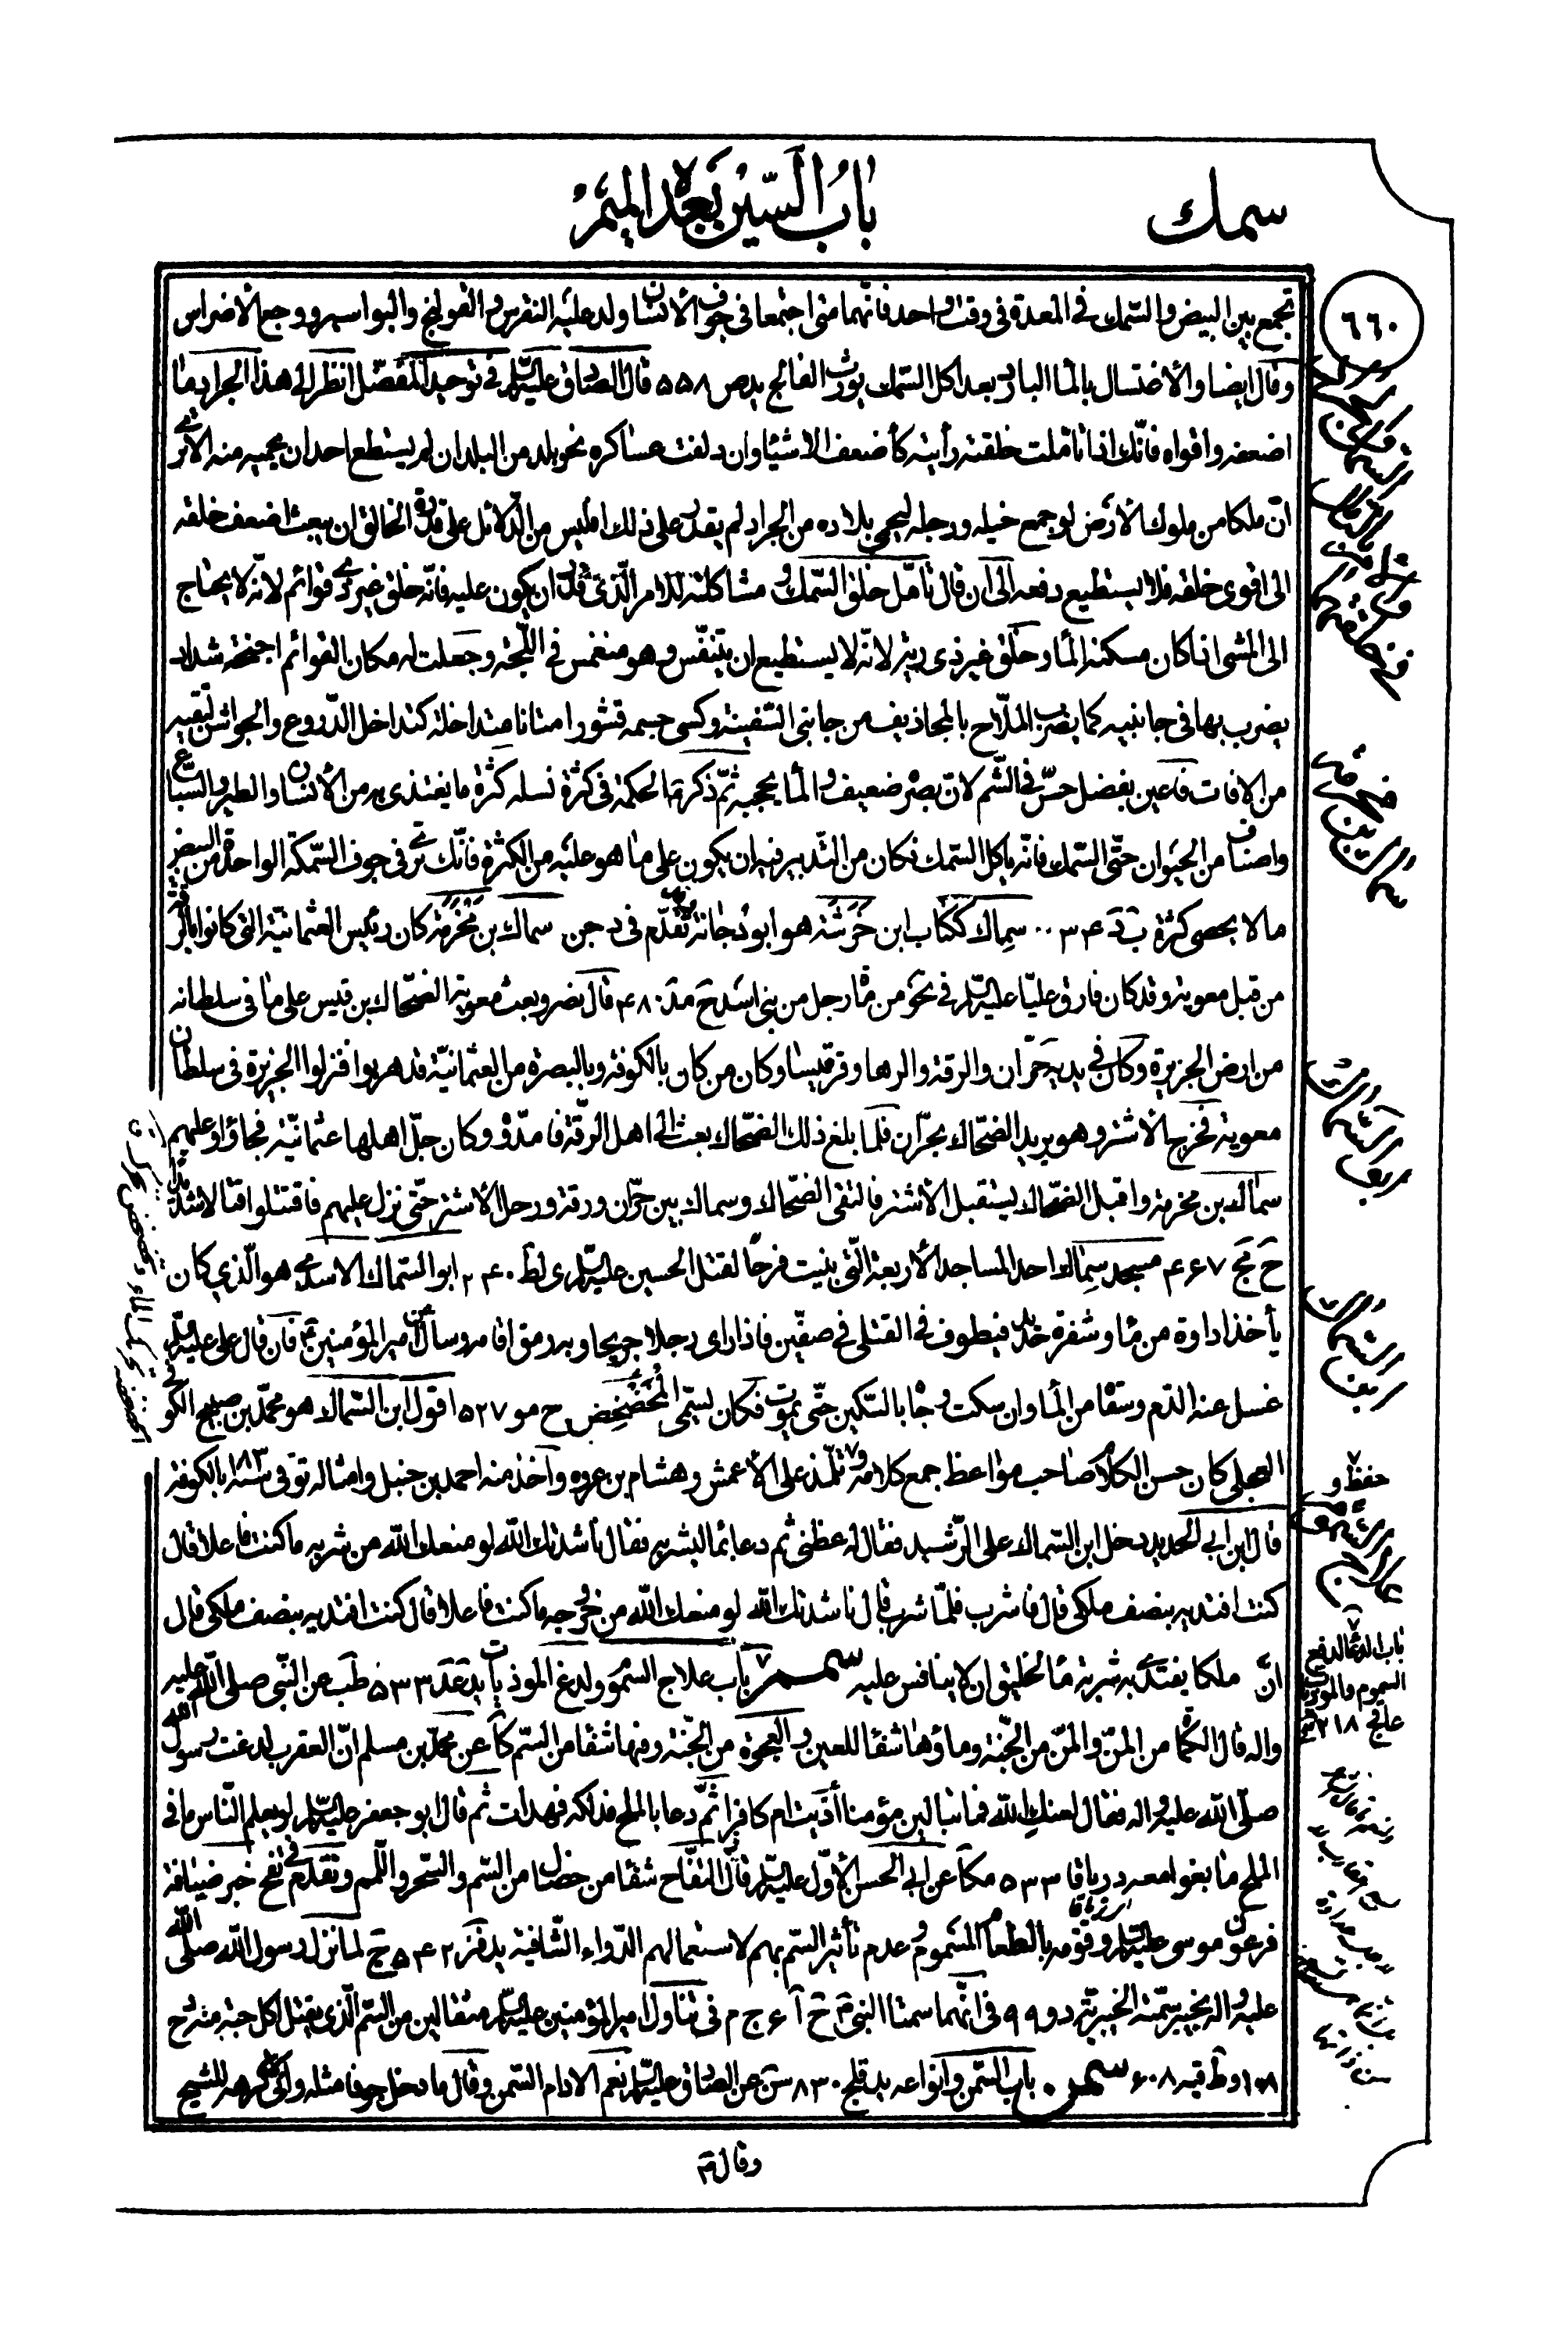 سمك
باب السين بعده الميم
٦٦٠
تجمع بين البيض والسمك في المعدة في وقت واحد فانهما متى اجتمعا في جوف الأنسان ولد عليه النقرس والقولنج والبواسير ووجع الأضراس
وقال ايضا والأغتسال بالماء البارد بعد اكل السمك يورث الفالج يد ص ٥٥٨ قال الصادق عليه السلام في توحيد المفضل انظر الى هذا الجراد ما
اضعفه واقواه فانك اذا تاملت خلقته رأيته كأضعف الاشياء وان دلفت عساكره نحو بلد من البلدان لم يستطع احد ان يحميه منه الا ترى
ان ملكا من ملوك الأرض لو جمع خيله ورجله ليحمي بلاده من الجراد لم يقدر على ذلك افليس من الدلائل على قدرة الخالق ان يبعث اضعف خلقه
الى اقوى خلقه فلا يستطيع دفعه الى ان قال تأمل خلق السمك و مشاكلته للامر الذي قدر ان يكون عليه فانه خلق غير ذي قوائم لانه لا يحتاج
الى المشي اذا كان مسكنه الماء وخلق غير ذي رية لانه لا يستطيع ان يتنفس وهو منغمس في اللجة وجعلت له مكان القوائم اجنحة شداد
يضرب بها في جانبيه كما يضرب الملاح بالمجاذيف من جانبي السفينة وكسي جسمه قشورا متانا متداخلة كتداخل الدروع والجواشن لتقيه
من الافات فاعين بفضل حس في الشم لان بصره ضعيف والماء يحجبه ثم ذكر تها لحكمة في كثرة نسله كثرة ما يغتذي به من الأنسان والطير والسباع
واصناف من الحيوان حتى السمك فانه ياكل السمك فكان من التدبير فيه ان يكون على ما هو عليه من الكثرة فانك ترى في جوف السمكة الواحدة من البيض
ما لا يحصى كثرة ب د ٣٤ ٠٠ سماك ككتاب ابن خرشة هو ابو دجانة تقدم في دجن سماك بن مخرمة كان رئيس العثمانية التي كانوا بالرقة
من قبل معوية وقد كان فارق عليا عليه السلام في نحو من مائة رجل من بني اسد ح مد ٤٨٠ قال نصر وبعث معوية الضحاك بن قيس على ما في سلطانه
من ارض الجزيرة وكان في يديه حران والرقة والرها وقرقيسا وكان من كان بالكوفة وبالبصرة من العثمانية قد هربوا فنزلوا الجزيرة في سلطان
معوية فخرج الأشتر وهو يريد الضحاك بحران فلما بلغ ذلك الضحاك بعث الى اهل الرقة فامدوه وكان جل اهلها عثمانية فجاؤا وعليهم
سماك بن مخرمة واقبل الضحاك يستقبل الأشتر فالتقى الضحاك وسماك بين حران ورقة ورحل الأشتر حتى نزل عليهم فاقتتلوا قتالا شديدا
ح مج ٤٦٧ مسجد سماك احد المساجد الأربعة التي بنيت فرحًا لقتل الحسين عليه السلام ى لط ٢٤٠ ابو السماك الاسدي هو الذي كان
يأخذ اداوة من ماء وشفرة حديد فيطوف في القتلى في صفين فاذا راى رجلا جريحا وبه رمق اقامه وسأله من امير المؤمنين فان قال علي عليه السلام
غسل عنه الدم وسقاه من الماء وان سكت وجاه بالسكين حتى يموت فكان يسمى المخضخض ح مو ٥٢٧ اقول ابن السماك هو محمد بن صبيح الكوفي
العجلي كان حسن الكلام صاحب مواعظ جمع كلامه وتلمذ على الأعمش وهشام بن عروه واخذ منه احمد بن حنبل وامثاله توفى سنه ١٨٣ بالكوفة
قال ابن ابي الحديد دخل ابن السماك على الرشيد فقال له عظني ثم دعا بماء ليشربه فقال ناشدتك الله لو منعك الله من شربه ما كنت فاعلا قال
كنت افتديه بنصف ملكي قال فاشرب فلما شرب قال ناشدتك الله لو منعك الله من خروجه ما كنت فاعلا قال كنت افتديه بنصف ملكي قال
ان ملكا يفتدى به شربة ماء لخليق ان لا ينافس عليه سمم باب علاج السموم ولدغ الموذيات يد عد ٥٣٣ طب عن النبي صلى الله عليه
واله قال الكماة من المن والمن من الجنة وماؤها شفاء للعين والعجوة من الجنة وفيها شفاء من السم كا عن محمد بن مسلم ان العقرب لدغت رسول الله
صلى الله عليه واله فقال لعنك الله فما تبالين مؤمنا أذيت ام كافرا ثم دعا بالملح فدلكه فهدات ثم قال ابو جعفر عليه السلام لو يعلم الناس ما في
الملح ما بغوا معه درياقا ٥٣٣ مكا عن ابي الحسن الأول عليه السلام قال التفاح شفاء من خصال من السم والسحر واللمم وتقدم في تفح خبر ضيافة
فرعون موسى عليه السلام وقومه بالطعام المسموم وعدم تأثير السم بهم لاستعمالهم الدواء الشافية يد فز ٥٤٢ ج لما نزل رسول الله صلى الله
عليه واله بخيبر سمته الخيبرية د و ٩٩ في انهما سمتا النبي ح آ ٦ ج م في تناول امير المؤمنين عليه السلام مثقالين من السم الذي يقتل كل حبة منه
١٠٨ وط قيه ٦٠٨ سمن باب السمن وانواعه يد قلج ٨٣٠ سن عن الصادق عليه السلام نعم الادام السمن وقال ما دخل جوفا مثله واني لاكرهه للشيخ
حفظ و
باب الدعاء لدفع
السموم والموذيات
عا قج ٢١٨
وقال